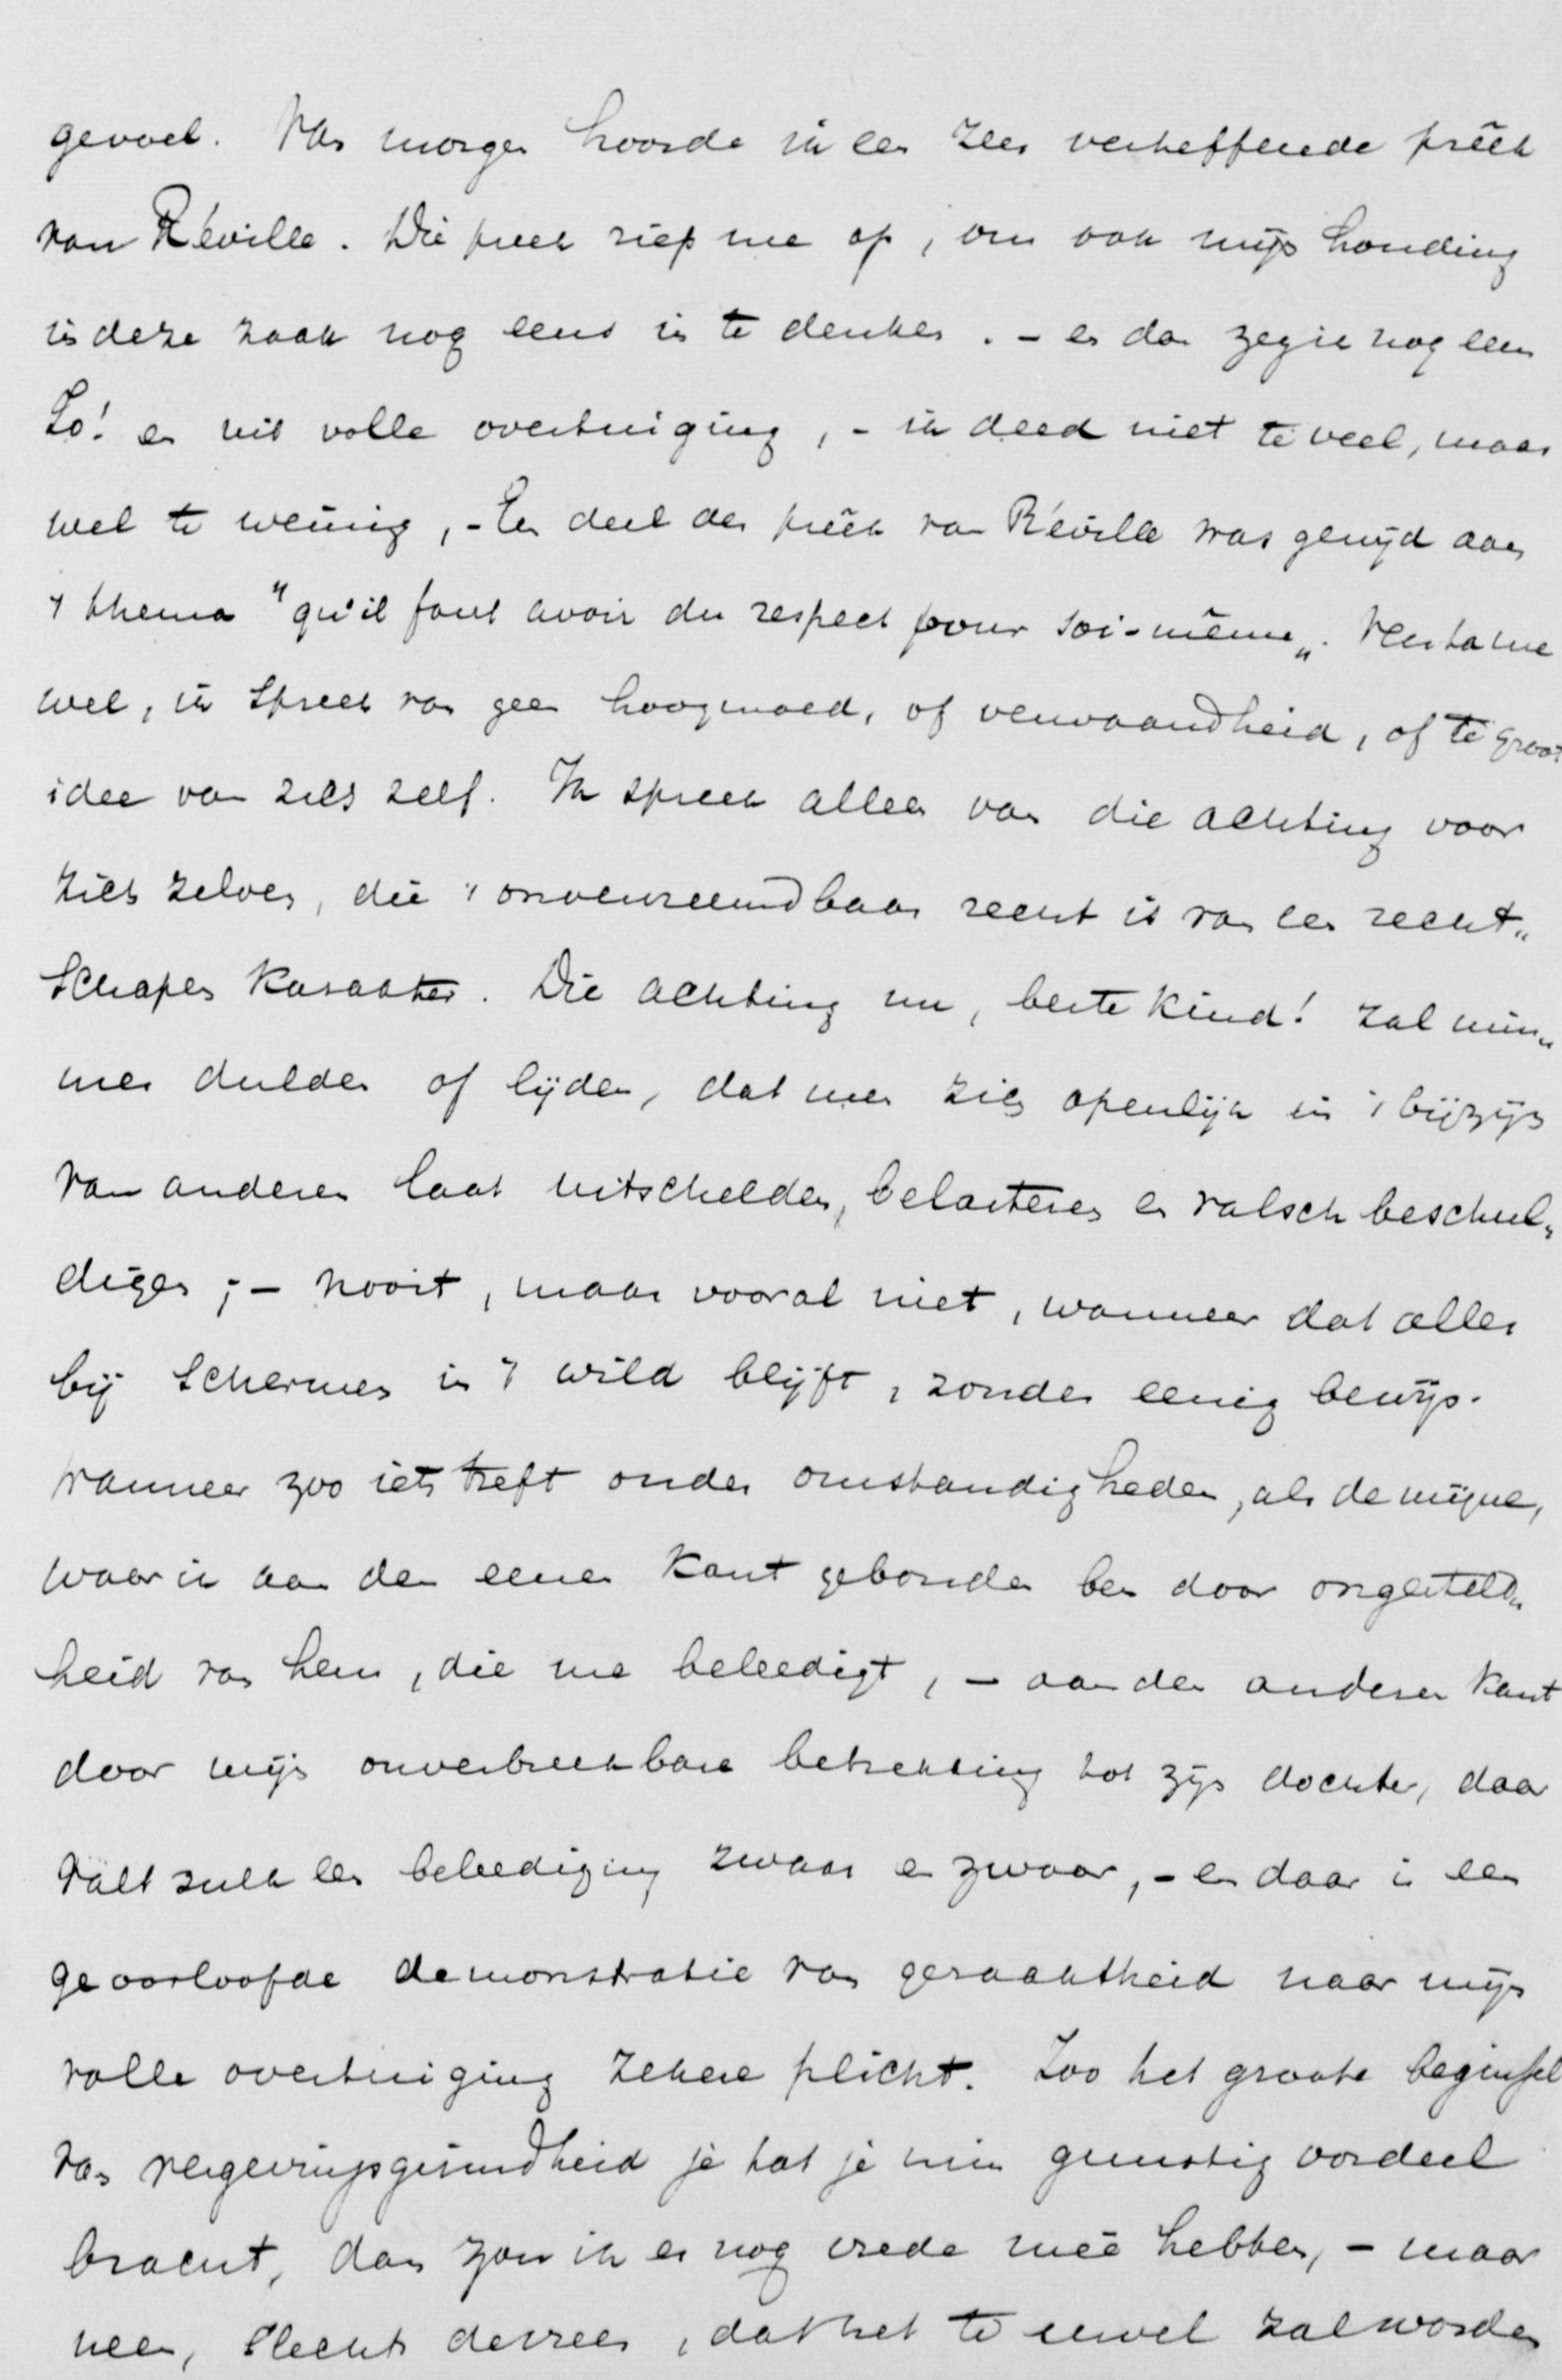 gevoel. Van morgen hoorde ik een zeer verheffende preêk
van Réville. Die preek riep me op, om ook mijn houding
in deze zaak nog eens in te denken. – en dan zeg ik nog eens
Zo! en uit volle overtuiging, – ik deed niet te veel, maar
wel te weinig, – Een deel der preêk van Réville was gewijd aan
't thema "qu'il faut avoir du respect pour soi-même„. Versta me
wel, ik spreek van geen hoogmoed, of verwaandheid, of te groot
idee van zich zelf. Ik spreek alleen van die achting voor
zich zelven, die 't onvervreemdbaar recht is van een recht„
schapen karakter. Die achting nu, beste kind! zal nim„
mer dulden of lijden, dat men zich openlijk in 't bijzijn
van anderen laat uitschelden, belasteren en valsch beschul„
digen; – nooit, maar vooral niet, wanneer dat alles
bij schermen in 't wild blijft, zonder eenig bewijs.
Wanneer zoo iets treft onder omstandigheden, als de mijne,
waar ik aan den eenen kant gebonden ben door ongesteld„
heid van hem, die me beleedigt, – aan den anderen kant
door mijn onverbreekbare betrekking tot zijn dochter, daar
valt zulk een beleediging zwaar en zwaar, – en daar is een
geoorloofde demonstratie van geraaktheid naar mijn
volle overtuiging zekere plicht. Zoo het groote beginsel
van vergevingsgezindheid je tot je gunstig oordeel
bracht, dan zou ik er nog vrede meê hebben, – maar
neen, slechts de vrees, dat het te euvel zal worden